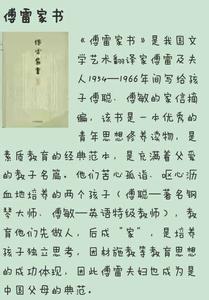 傅雷家书
傅雷家書
《傅雷家书》是我国文
学艺术翻译家傅雷及夫
人1954—1966年间写给孩
子傅聪、傅敏的家信摘
编,该书是一本优秀的
青年思想修养读物,是
素质教育的经典范本,是充满着父爱
的教子名篇。他们苦心孤诣、呕心沥
血地培养的两个孩子(傅聪—著名钢
琴大师、傅敏—英语特级教师),教
育他们先做人,后成“家”,是培养
孩子独立思考,因材施教等教育思想
的成功体现,因此傅雷夫妇也成为是
中国父母的典范。